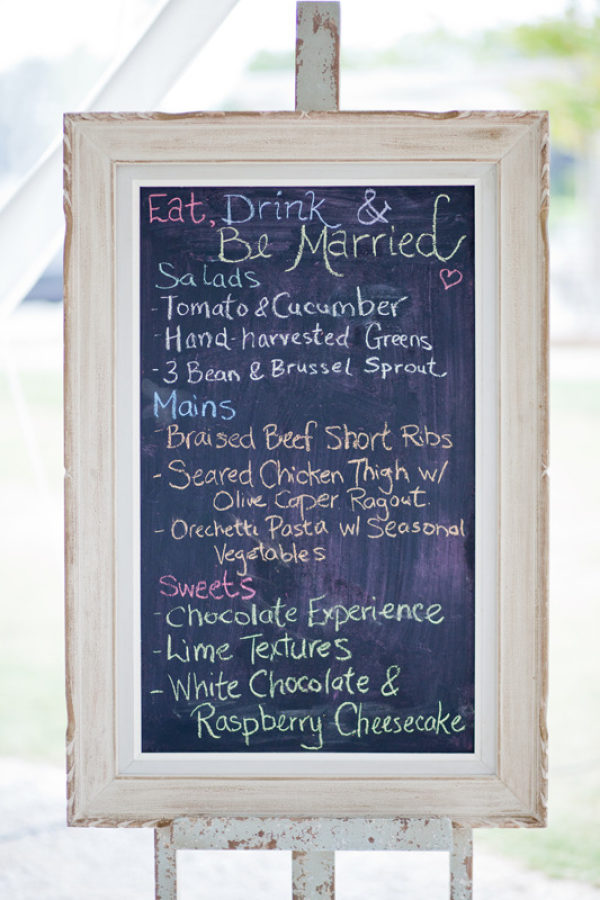 Eat, Drink &
Be Married
Salads
- Tomato & Cucumber
- Hand-harvested Greens
- 3 Bean & Brussel Sprout
Mains
- Braised Beef Short Ribs
- Seared Chicken Thigh w/
Olive Caper Ragout
- Orechetti Pasta w/ Seasonal
Vegetables
Sweets
- Chocolate Experience
- Lime Textures
- White Chocolate &
Raspberry Cheesecake